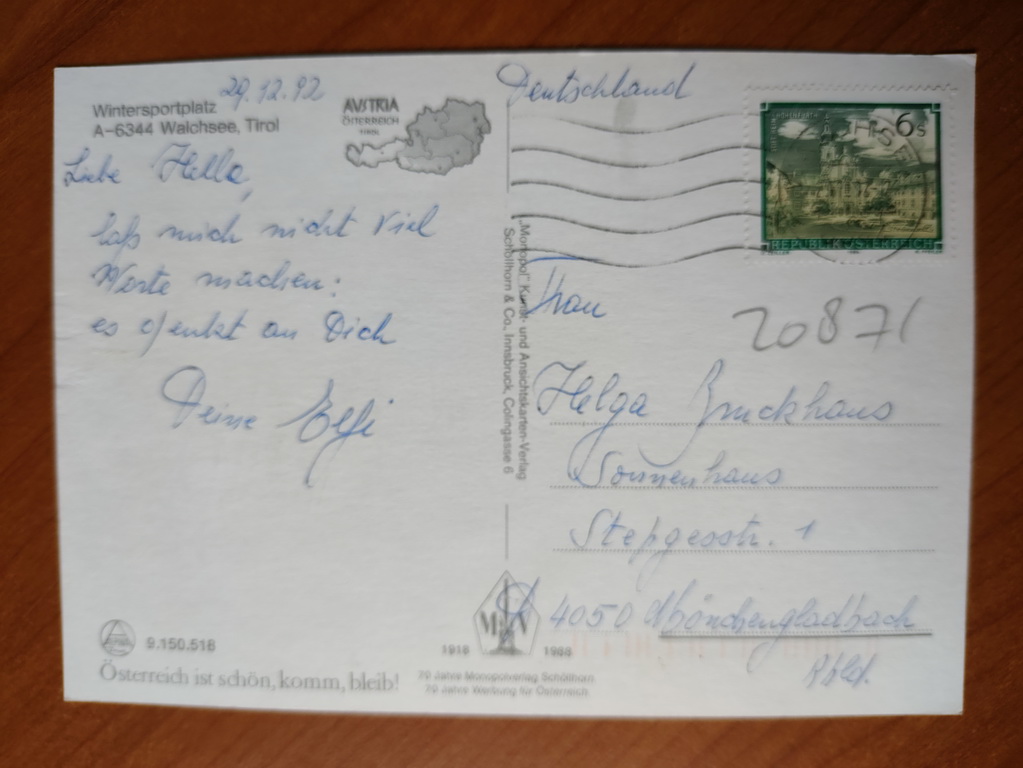 29.12.92
Wintersportplatz
A-6344 Walchsee, Tirol
AVSTRIA
ÖSTERREICH
TIROL
Liebe Hella,
laß mich nicht viel
Worte machen:
es denkt an Dich
Deine Elfi
9.150.518
Österreich ist schön, komm, bleib!
„Monopol" Kunst- und Ansichtskarten-Verlag
Schöllhorn & Co., Innsbruck, Colingasse 6
1918 1988
70 Jahre Monopolverlag Schöllhorn
70 Jahre Werbung für Österreich
Deutschland
6s
REPUBLIK ÖSTERREICH
20871
Frau
Helga Bruckhaus
Sonnenhaus
Stepgesstr. 1
D 4050 Mönchengladbach
Rhld.